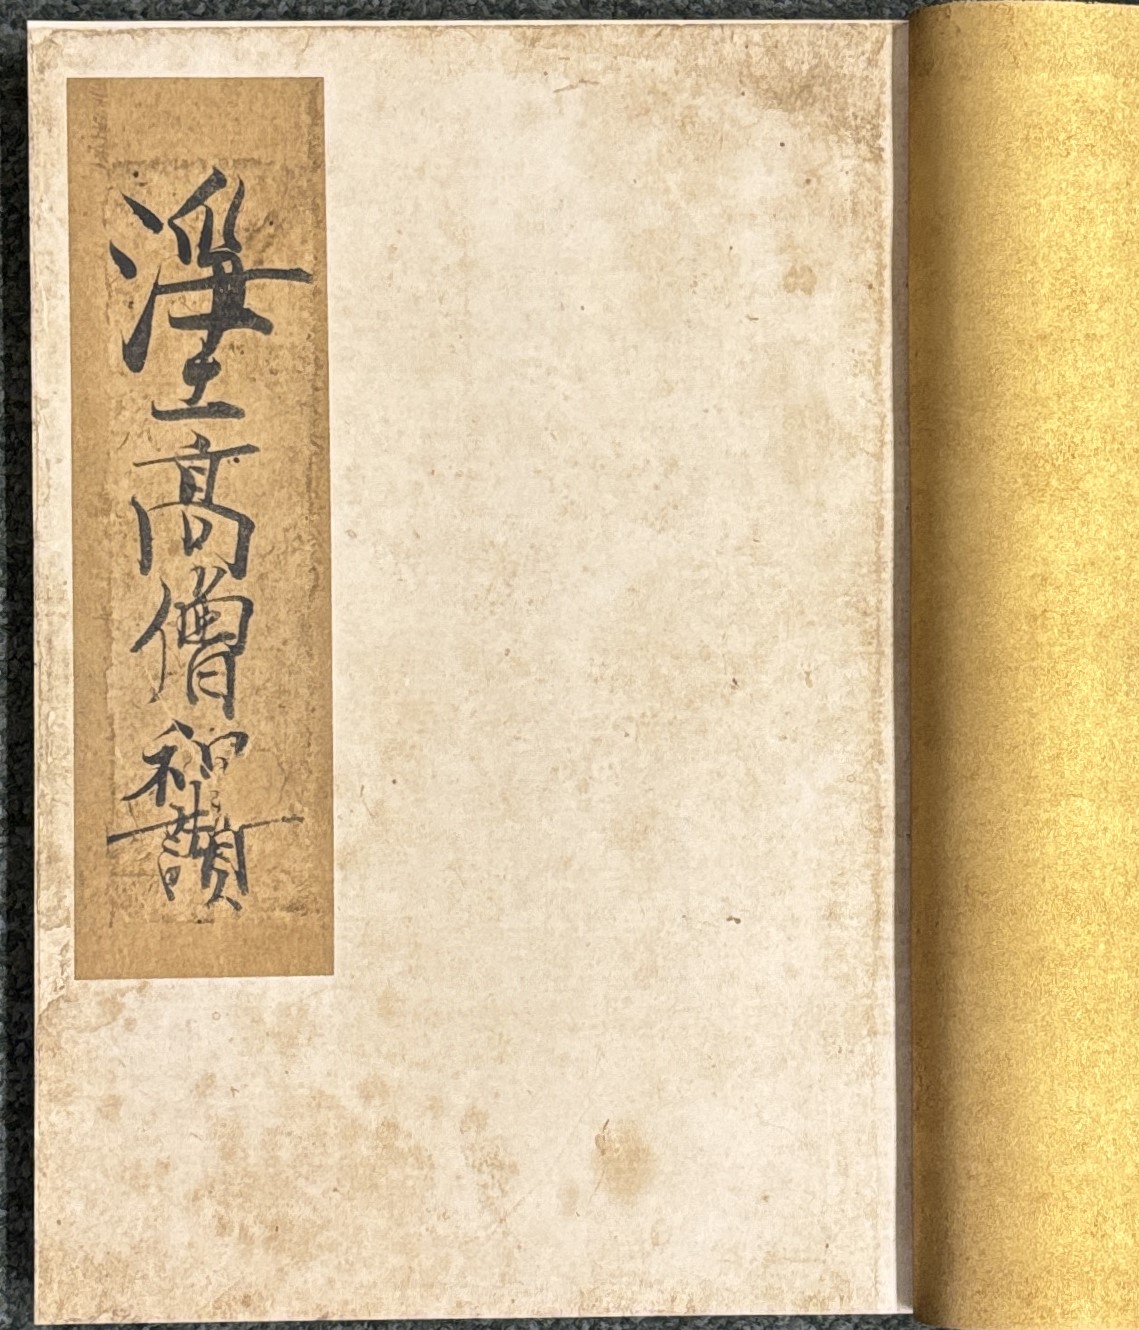 淨土高僧和讃